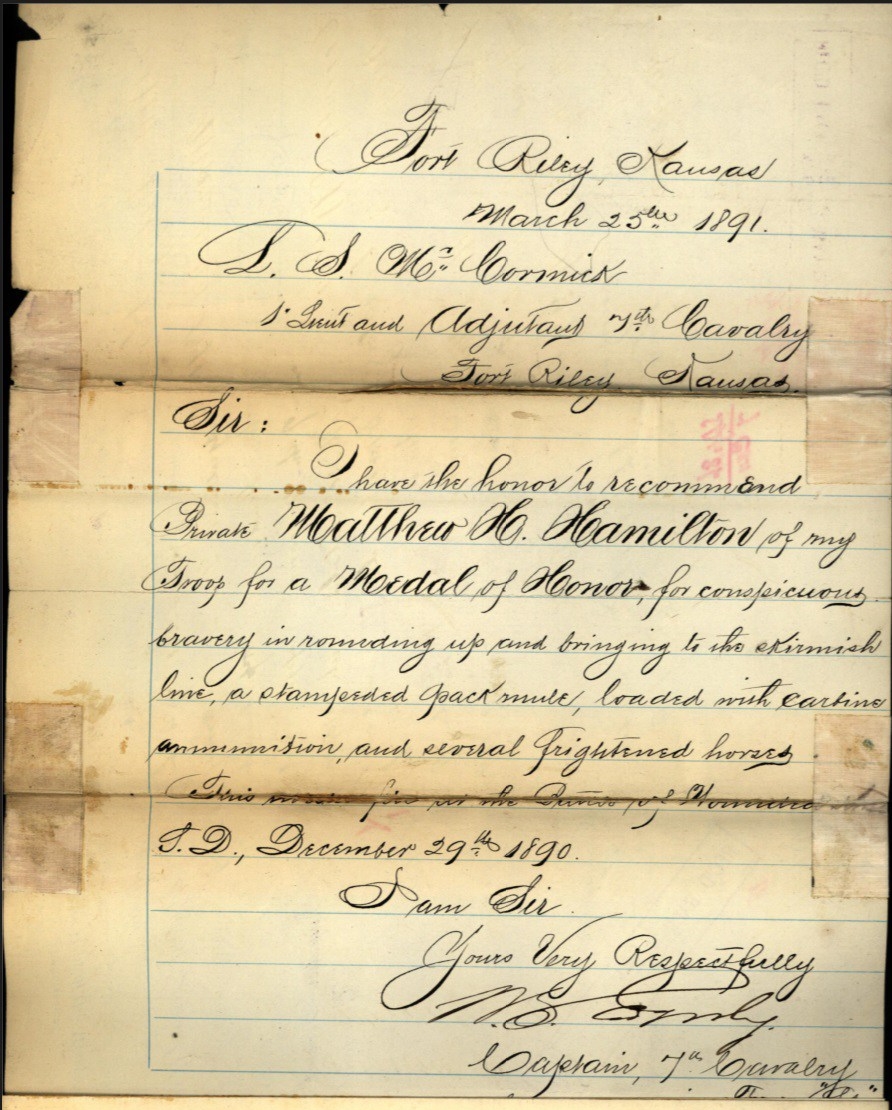 Fort Riley, Kansas
March 25th 1891.
L. S. Mc Cormick
1st Lieut and Adjutant 7th Cavalry
Fort Riley Kansas.
Sir:
I have the honor to recommend
Private Matthew H. Hamilton of my
Troop for a Medal of Honor, for conspicuous
bravery in rounding up and bringing to the skirmish
line, a stampeded pack mule, loaded with carbine
ammunition, and several frightened horses
This in the of
S.D., December 29th 1890.
I am Sir
Yours Very Respectfully
Captain, 7th Cavalry